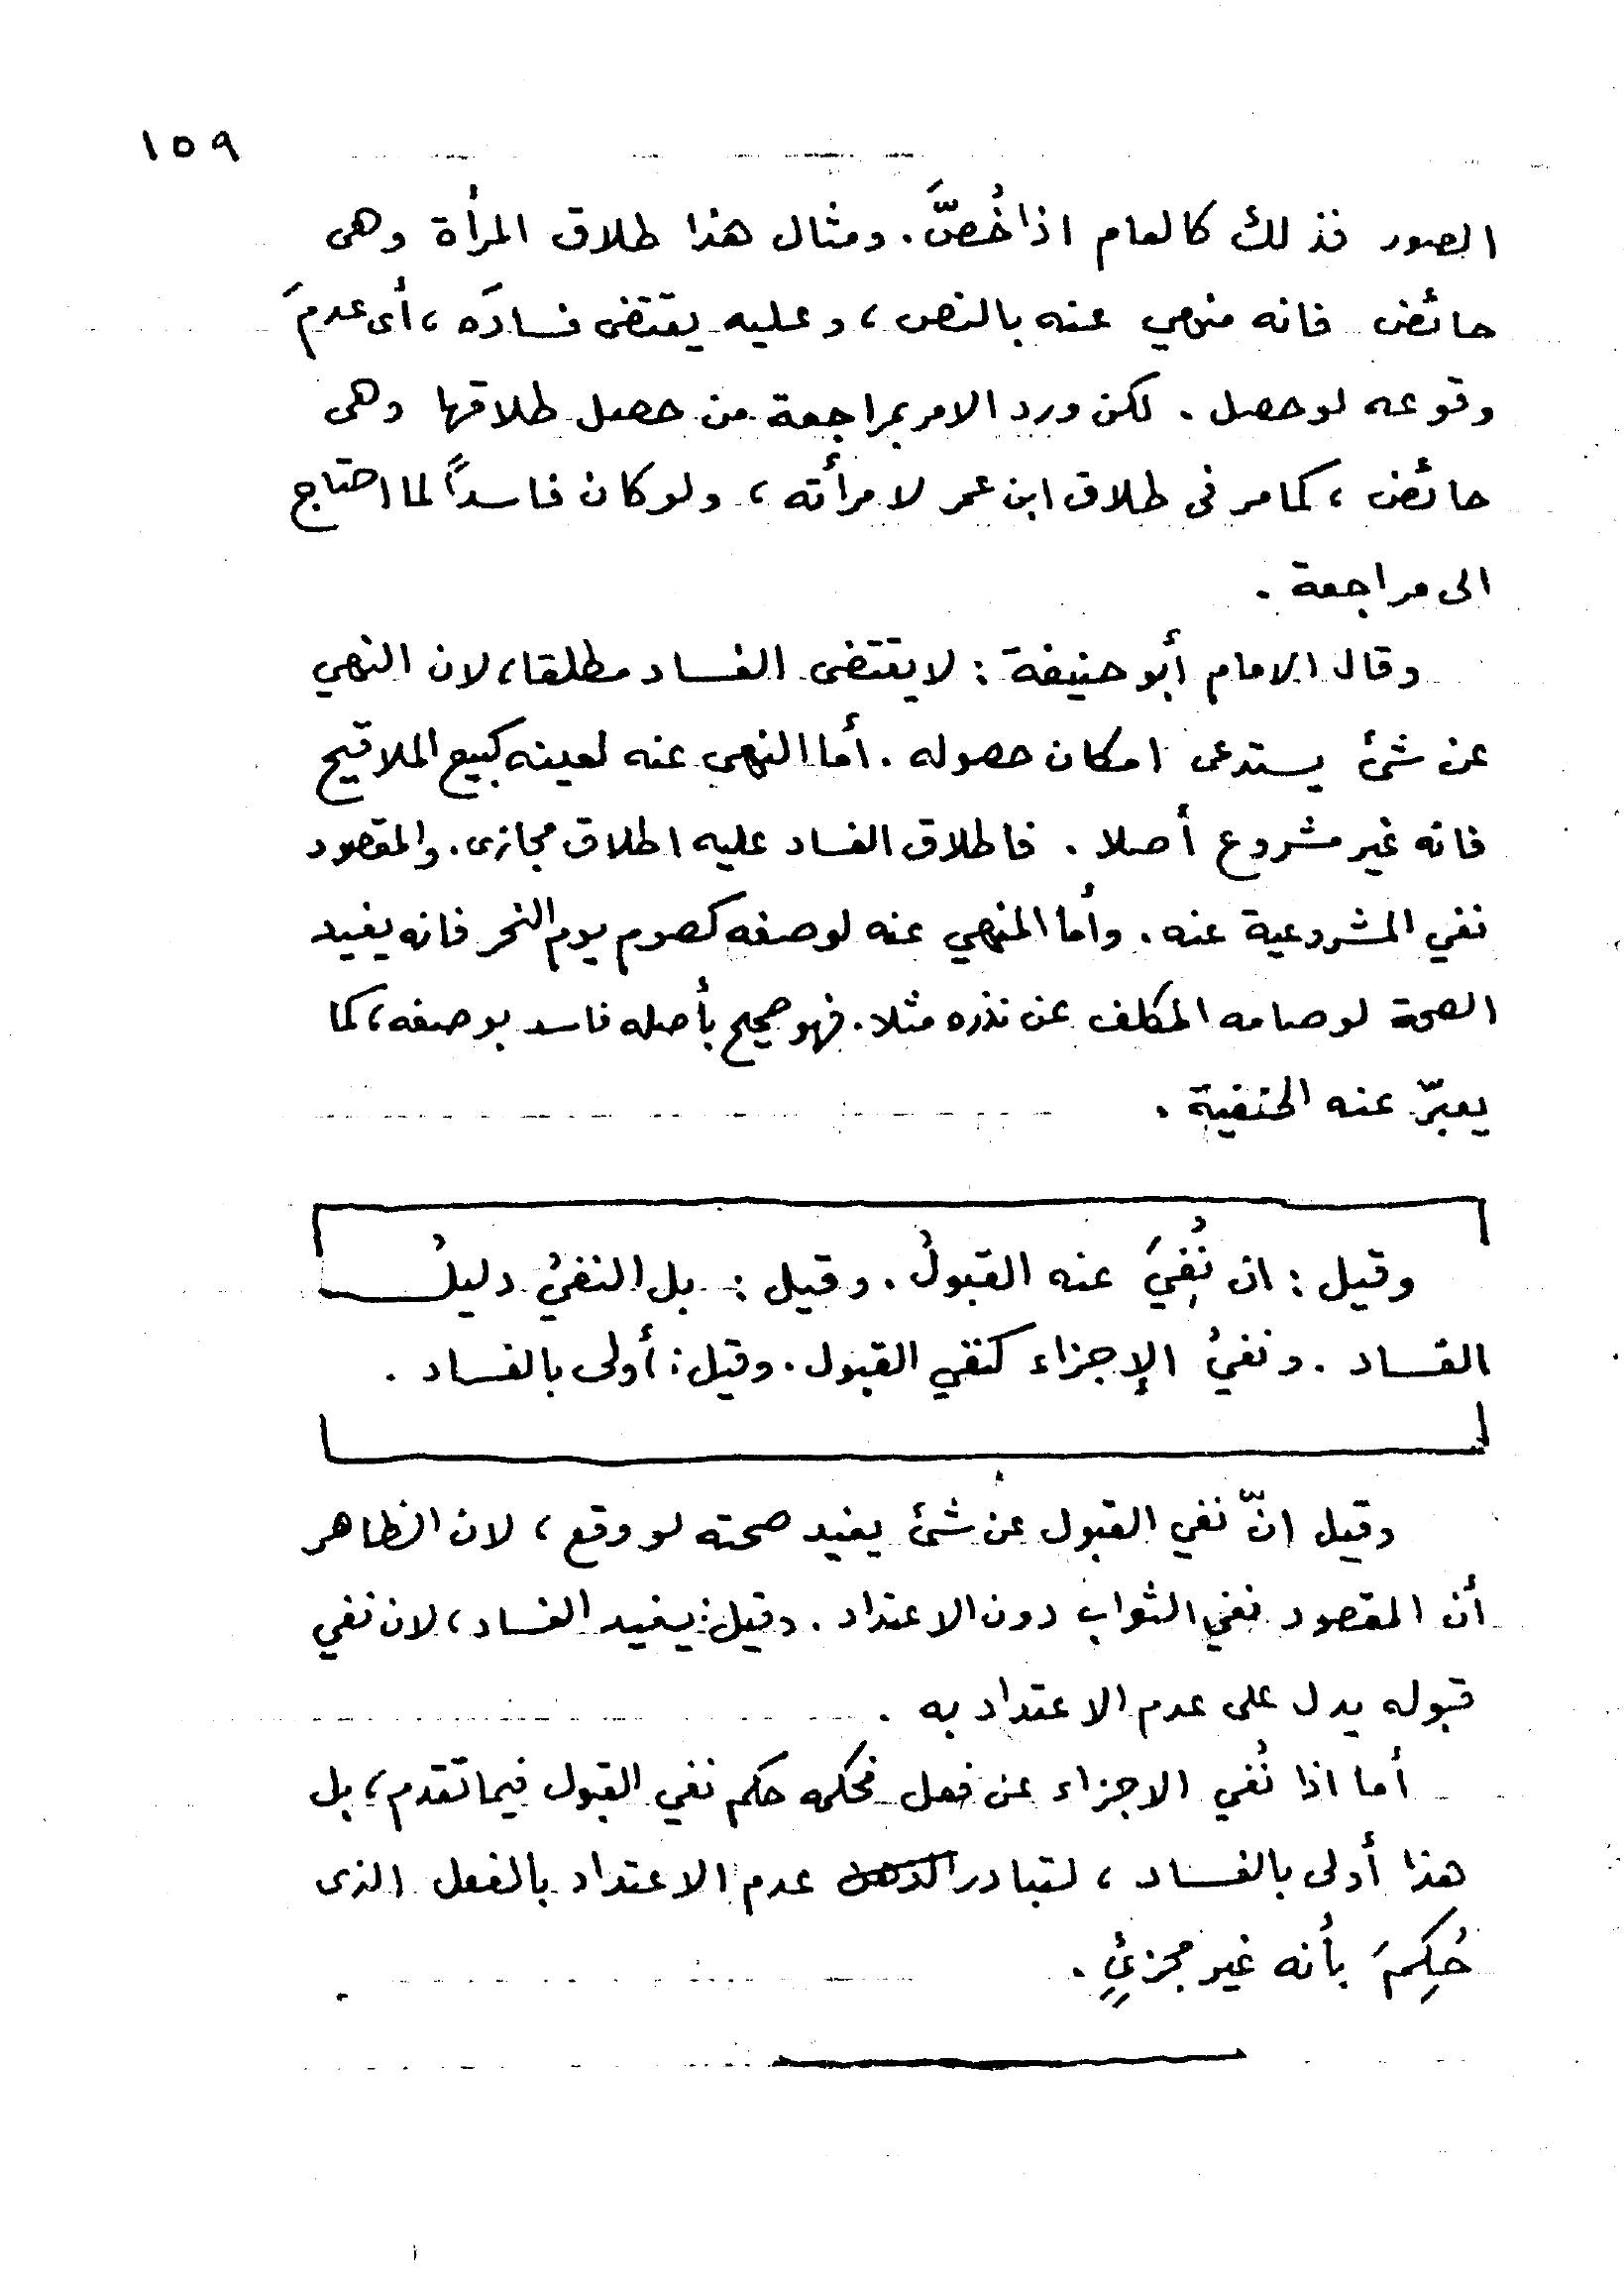 ١٥٩
الصور فذلك كالعام اذا خُصَّ. ومثال هذا طلاق المرأة وهى
حائض فانه منهي عنه بالنص، وعليه يقتضى فسادَه، أى عدمَ
وقوعه لو حصل. لكن ورد الامر بمراجعة من حصل طلاقها وهى
حائض، كما مر فى طلاق ابن عمر لامرأته، ولو كان فاسداً لما احتاج
الى مراجعة.
وقال الامام أبو حنيفة: لا يقتضى الفساد مطلقا، لان النهي
عن شئ يستدعى امكان حصوله. أما النهى عنه لعينه كبيع الملاقيح
فانه غير مشروع أصلا. فاطلاق الفساد عليه اطلاق مجازى. والمقصود
نفي المشروعية عنه. وأما المنهي عنه لوصفه كصوم يوم النحر فانه يفيد
الصحة لو صامه المكلف عن نذره مثلا. فهو صحيح بأصله فاسد بوصفه، كما
يعبّر عنه الحنفية.
وقيل: ان نُفِيَ عنه القبولُ. وقيل: بل النفيُ دليلُ
الفساد. ونفيُ الإجزاء كنفي القبول. وقيل: أولى بالفساد.
وقيل انّ نفي القبول عن شئ يفيد صحته لو وقع، لان الظاهر
أن المقصود نفي الثواب دون الاعتداد. وقيل: يفيد الفساد، لان نفي
قبوله يدل على عدم الاعتداد به.
أما اذا نُفي الاجزاء عن فعل فحكمه حكم نفي القبول فيما تقدم، بل
هذا أولى بالفساد، لتبادر الذهن عدم الاعتداد بالفعل الذى
حُكِمَ بأنه غير مجزئٍ.